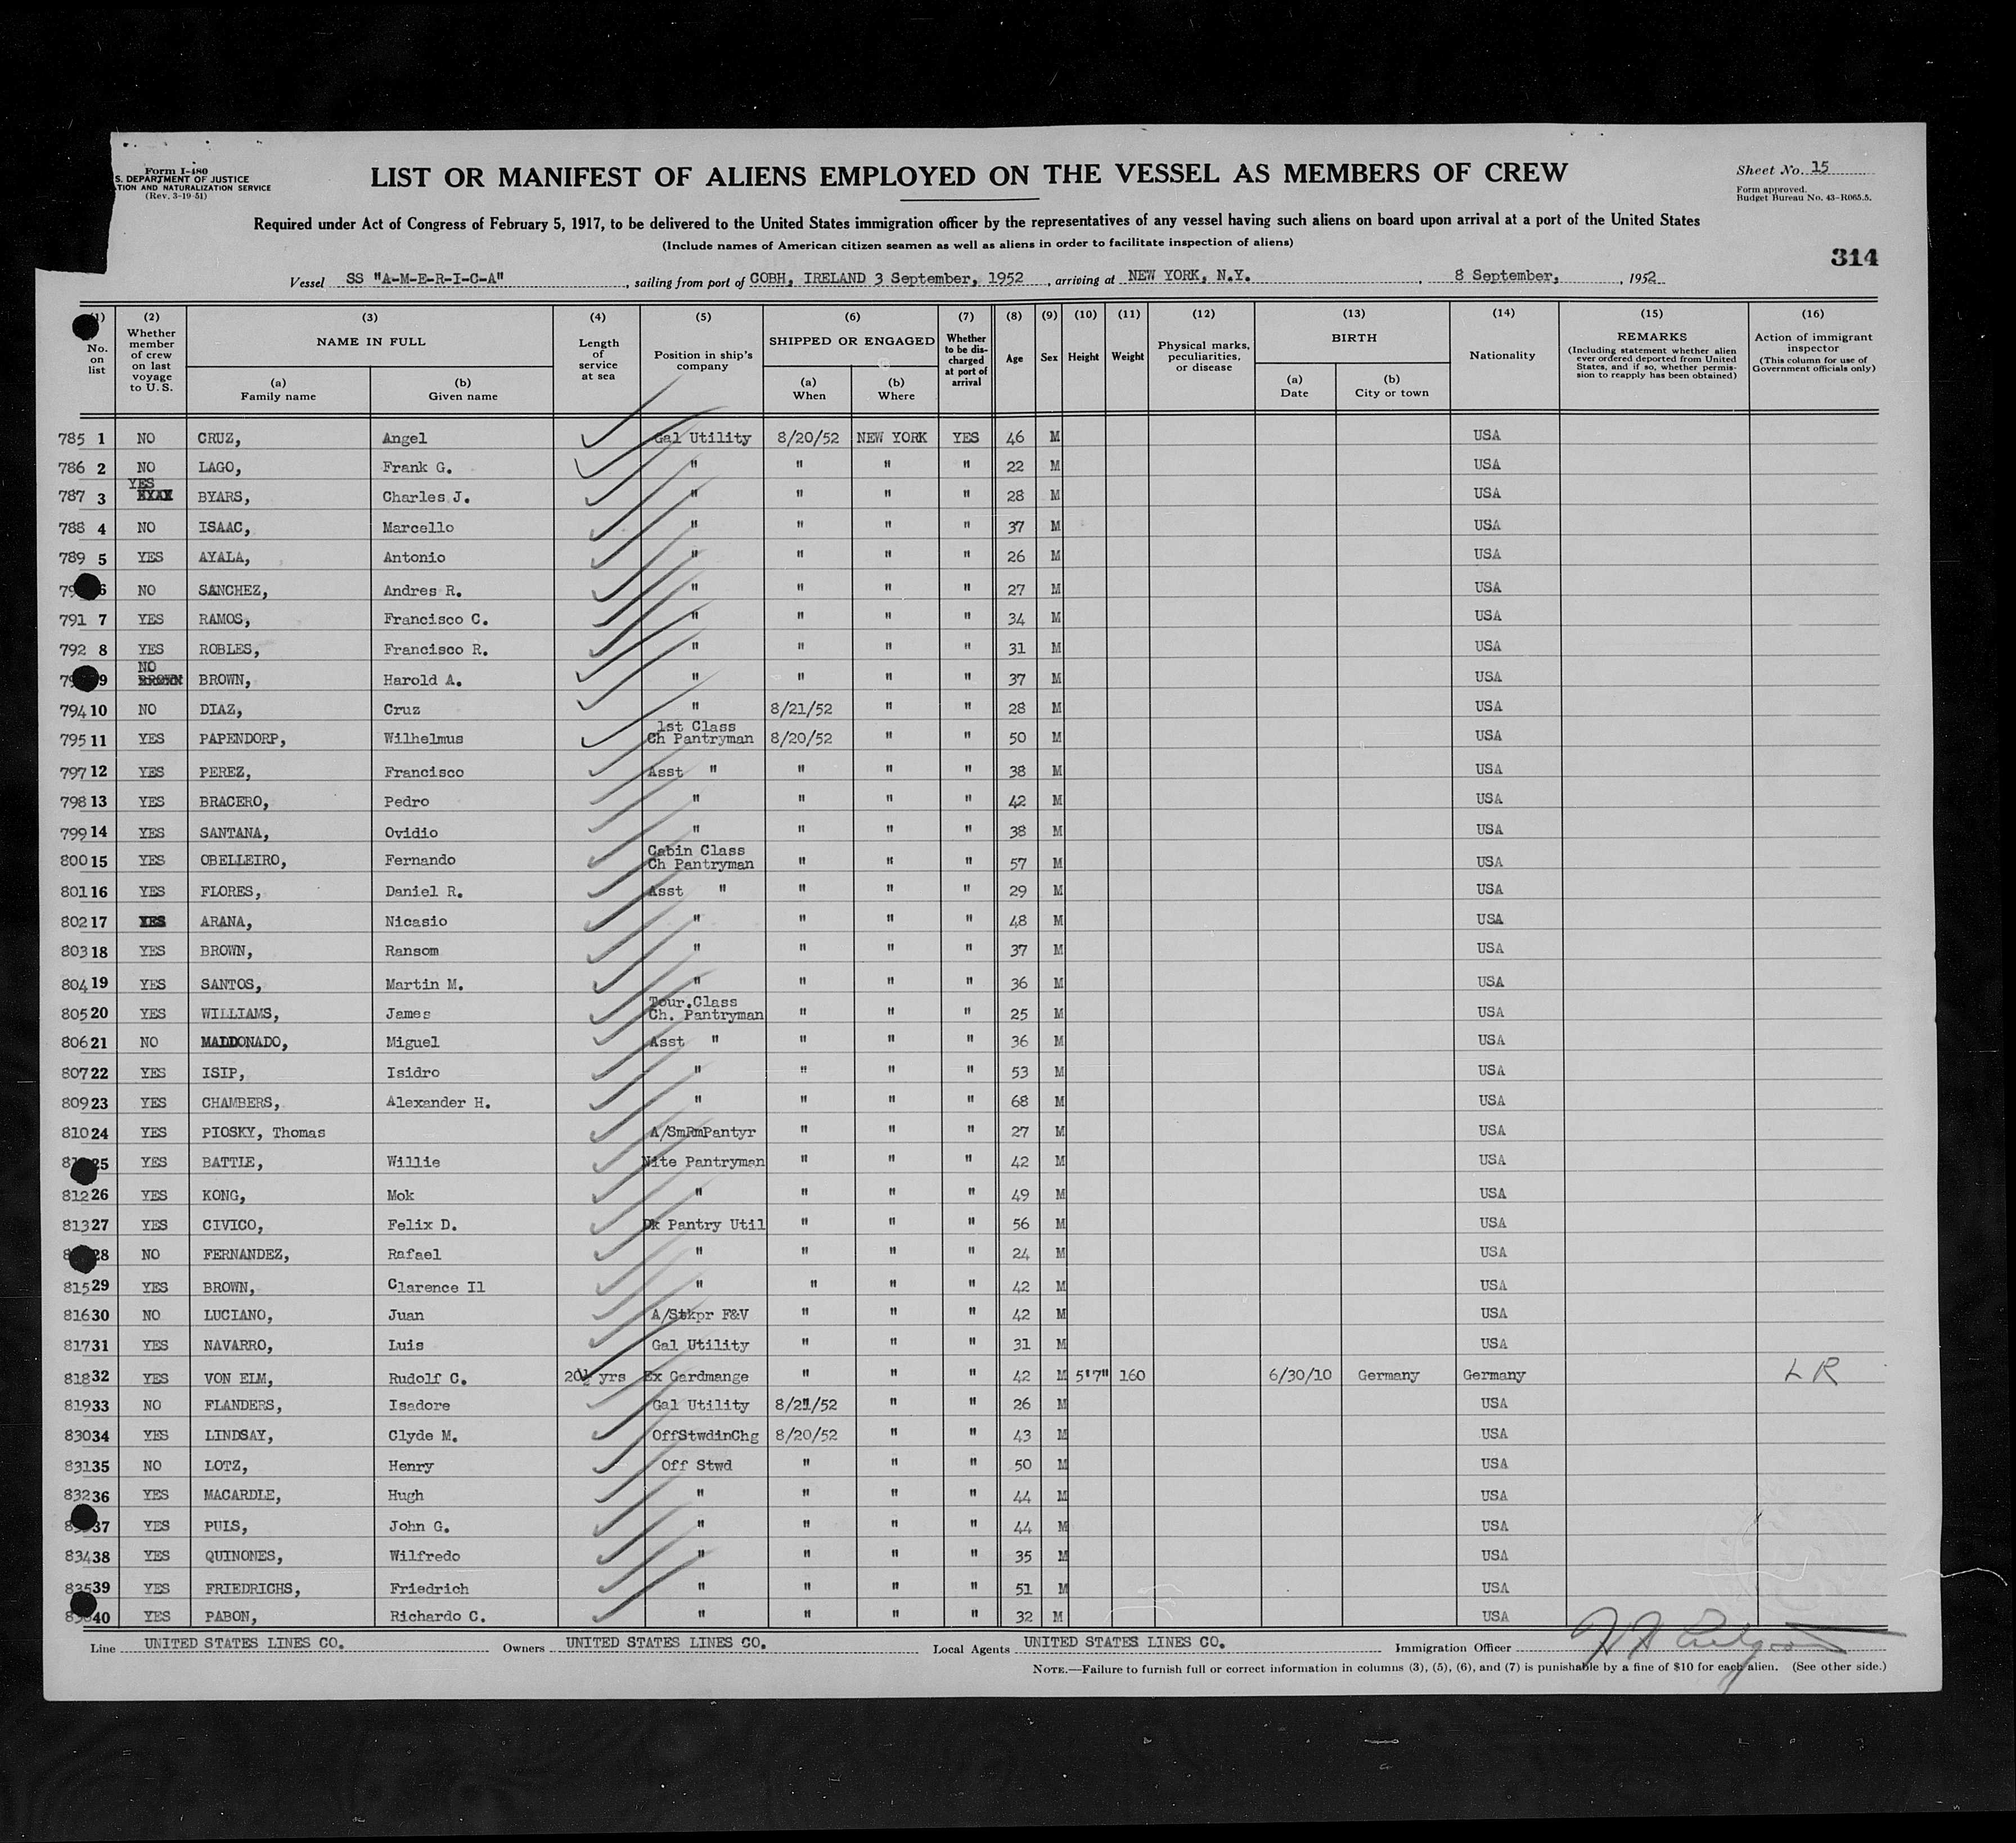 Form I-480
S. DEPARTMENT OF JUSTICE
TION AND NATURALIZATION SERVICE
(Rev. 3-19-51)
LIST OR MANIFEST OF ALIENS EMPLOYED ON THE VESSEL AS MEMBERS OF CREW
Sheet No. 15
Form approved.
Budget Bureau No. 43-R065.5.
Required under Act of Congress of February 5, 1917, to be delivered to the United States immigration officer by the representatives of any vessel having such aliens on board upon arrival at a port of the United States
(Include names of American citizen seamen as well as aliens in order to facilitate inspection of aliens)
314
Vessel SS "A-M-E-R-I-C-A", sailing from port of COBH, IRELAND 3 September, 1952, arriving at NEW YORK, N.Y., 8 September, 1952
(1) No. on list (2) Whether member of crew on last voyage to U.S. (3) NAME IN FULL (a) Family name (b) Given name (4) Length of service at sea (5) Position in ship's company (6) SHIPPED OR ENGAGED (a) When (b) Where (7) Whether to be discharged at port of arrival (8) Age (9) Sex (10) Height (11) Weight (12) Physical marks, peculiarities, or disease (13) BIRTH (a) Date (b) City or town (14) Nationality (15) REMARKS (Including statement whether alien ever ordered deported from United States, and if so, whether permission to reapply has been obtained) (16) Action of immigrant inspector (This column for use of Government officials only)
785 1 NO CRUZ, Angel Gal Utility 8/20/52 NEW YORK YES 46 M USA
786 2 NO LAGO, Frank G. " " " " 22 M USA
787 3 YES BYARS, Charles J. " " " " 28 M USA
788 4 NO ISAAC, Marcello " " " " 37 M USA
789 5 YES AYALA, Antonio " " " " 26 M USA
6 NO SANCHEZ, Andres R. " " " " 27 M USA
791 7 YES RAMOS, Francisco C. " " " " 34 M USA
792 8 YES ROBLES, Francisco R. " " " " 31 M USA
9 NO BROWN, Harold A. " " " " 37 M USA
794 10 NO DIAZ, Cruz " 8/21/52 " " 28 M USA
795 11 YES PAPENDORP, Wilhelmus 1st Class Ch Pantryman 8/20/52 " " 50 M USA
797 12 YES PEREZ, Francisco Asst " " " " 38 M USA
798 13 YES BRACERO, Pedro " " " " 42 M USA
799 14 YES SANTANA, Ovidio " " " " 38 M USA
800 15 YES OBELLEIRO, Fernando Cabin Class Ch Pantryman " " " 57 M USA
801 16 YES FLORES, Daniel R. Asst " " " " 29 M USA
802 17 YES ARANA, Nicasio " " " " 48 M USA
803 18 YES BROWN, Ransom " " " " 37 M USA
804 19 YES SANTOS, Martin M. " " " " 36 M USA
805 20 YES WILLIAMS, James Tour.Class Ch. Pantryman " " " 25 M USA
806 21 NO MALDONADO, Miguel Asst " " " " 36 M USA
807 22 YES ISIP, Isidro " " " " 53 M USA
809 23 YES CHAMBERS, Alexander H. " " " " 68 M USA
810 24 YES PIOSKY, Thomas A/SmRmPantyr " " " 27 M USA
25 YES BATTLE, Willie Nite Pantryman " " " 42 M USA
812 26 YES KONG, Mok " " " " 49 M USA
813 27 YES CIVICO, Felix D. Dk Pantry Util " " " 56 M USA
28 NO FERNANDEZ, Rafael " " " " 24 M USA
815 29 YES BROWN, Clarence Il " " " " 42 M USA
816 30 NO LUCIANO, Juan A/Stkpr F&V " " " 42 M USA
817 31 YES NAVARRO, Luis Gal Utility " " " 31 M USA
818 32 YES VON ELM, Rudolf C. 20½ yrs Ex Gardmange " " " 42 M 5'7" 160 6/30/10 Germany Germany LR
819 33 NO FLANDERS, Isadore Gal Utility 8/21/52 " " 26 M USA
830 34 YES LINDSAY, Clyde M. OffStwdinChg 8/20/52 " " 43 M USA
831 35 NO LOTZ, Henry Off Stwd " " " 50 M USA
832 36 YES MACARDLE, Hugh " " " " 44 M USA
37 YES PULS, John G. " " " " 44 M USA
834 38 YES QUINONES, Wilfredo " " " " 35 M USA
835 39 YES FRIEDRICHS, Friedrich " " " " 51 M USA
40 YES PABON, Richardo C. " " " " 32 M USA
Line UNITED STATES LINES CO. Owners UNITED STATES LINES CO. Local Agents UNITED STATES LINES CO. Immigration Officer
NOTE.—Failure to furnish full or correct information in columns (3), (5), (6), and (7) is punishable by a fine of $10 for each alien. (See other side.)